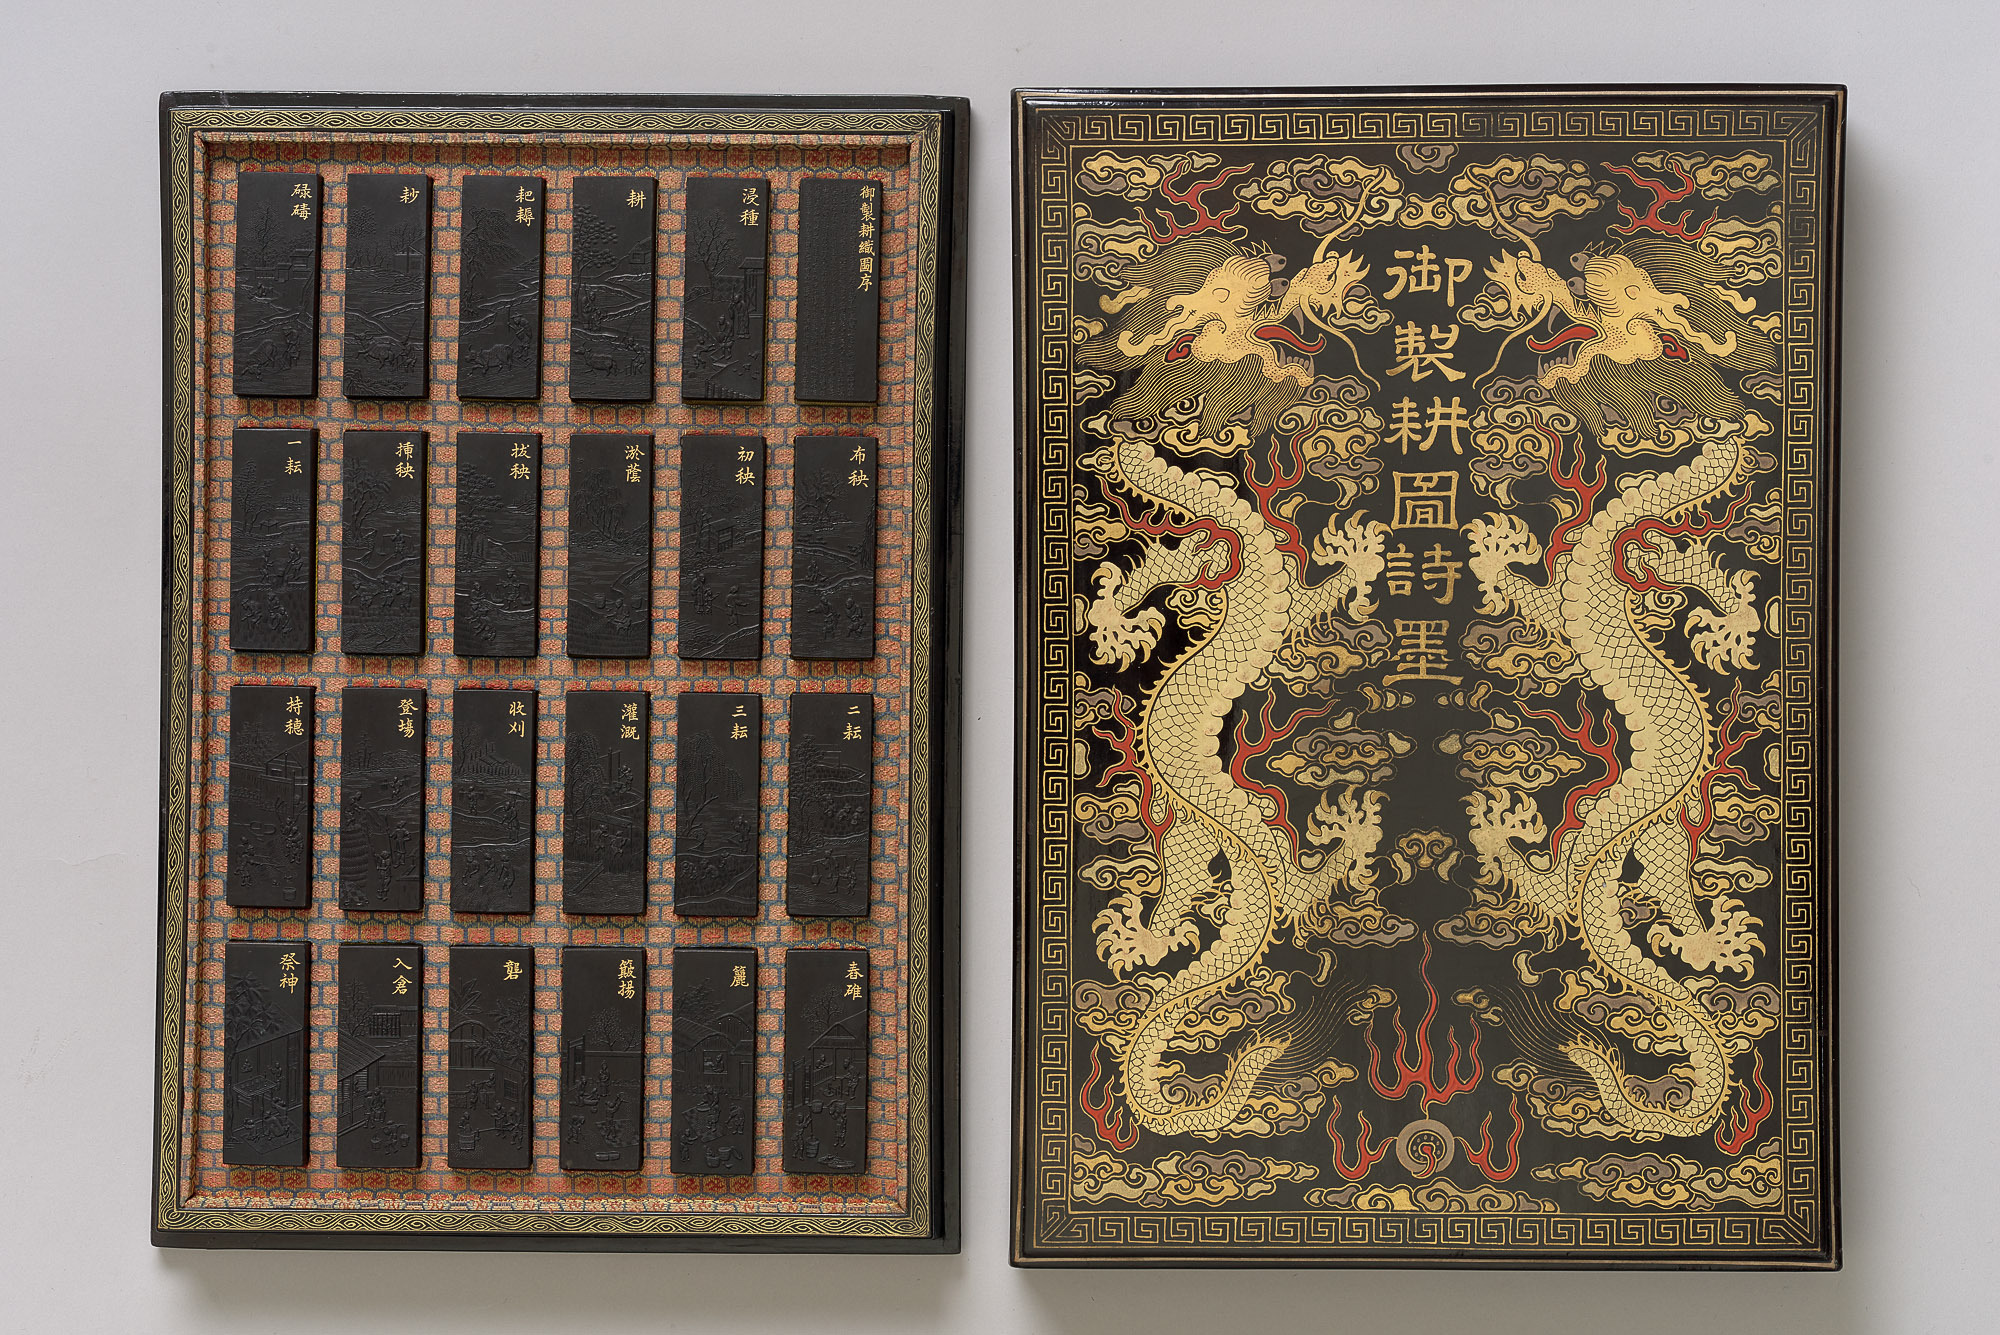 御製耕織圖序
浸種
耕
耙耨
耖
碌碡
布秧
初秧
淤蔭
拔秧
插秧
一耘
二耘
三耘
灌溉
收刈
登場
持穗
舂碓
簏
簸揚
礱
入倉
祭神
御製耕圖詩墨